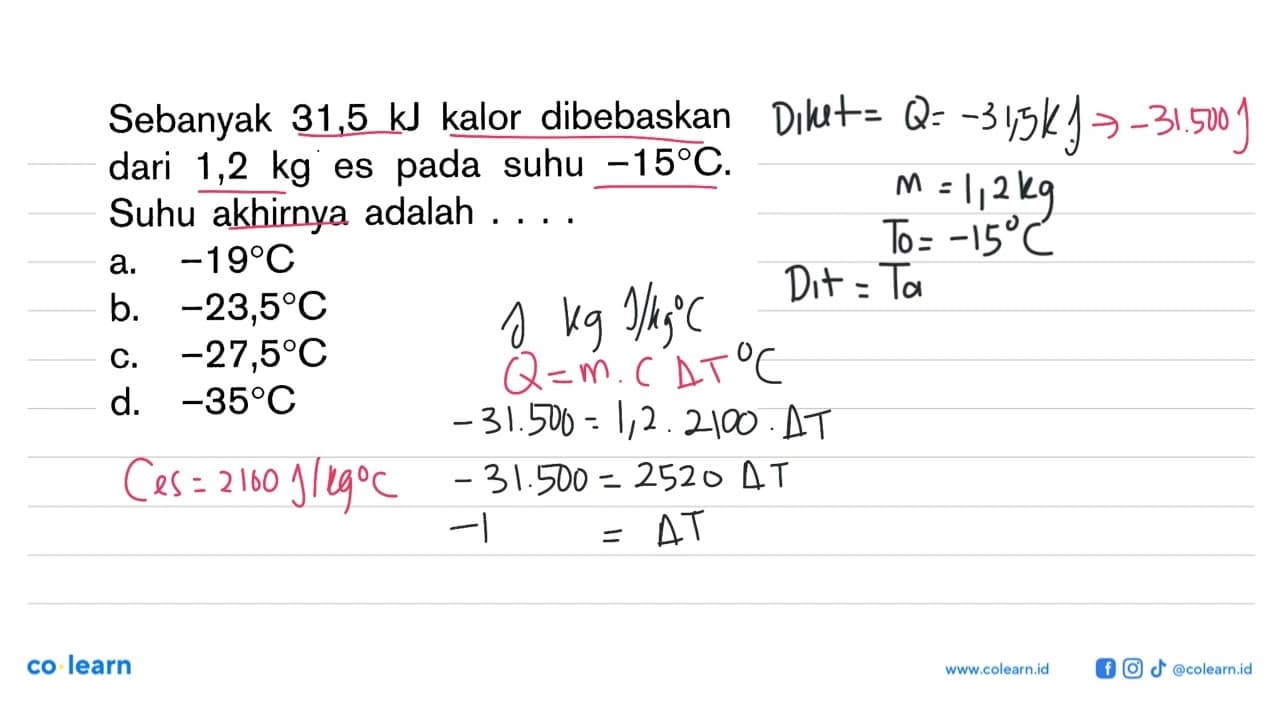 Sebanyak 31,5 kJ kalor dibebaskan
dari 1,2 kg es pada suhu −15°C.
Suhu akhirnya adalah . . . .
a. −19°C
b. −23,5°C
c. −27,5°C
d. −35°C
Diket = Q = −31,5 kJ → −31.500 J
m = 1,2 kg
To = −15°C
Dit = Ta
J kg J/kg°C
Q = m . C ΔT °C
−31.500 = 1,2 . 2100 . ΔT
Ces = 2100 J/kg°C
−31.500 = 2520 ΔT
−1 = ΔT
co·learn
www.colearn.id
@colearn.id